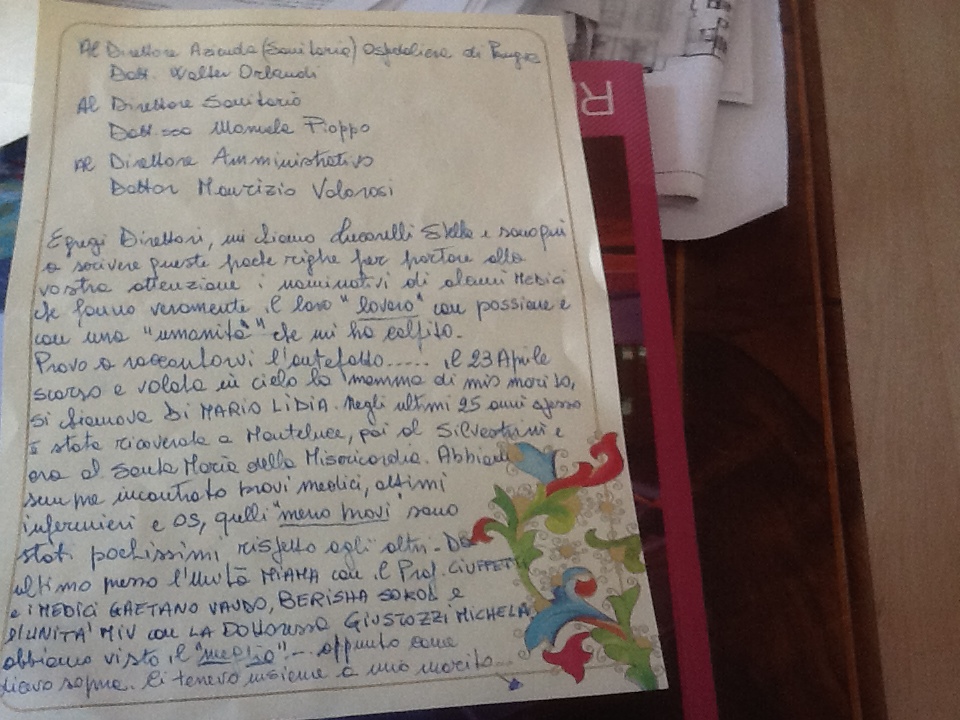 Al Direttore Azienda (Sanitaria) Ospedaliera di Perugia
Dott. Walter Orlandi
Al Direttore Sanitario
Dott.ssa Manuela Pioppo
Al Direttore Amministrativo
Dottor Maurizio Valorosi
Egregi Direttori, mi chiamo Lucarelli Stella e sono qui
a scrivere queste poche righe per portare alla
vostra attenzione i nominativi di alcuni Medici
che fanno veramente il loro "lavoro" con passione e
con una "umanità" che mi ha colpito.
Provo a raccontarvi l'antefatto..... il 23 Aprile
scorso è volata in cielo la mamma di mio marito,
si chiamava DI MARIO LIDIA. Negli ultimi 25 anni spesso
è stata ricoverata a Monteluce, poi al Silvestrini e
ora al Santa Maria della Misericordia. Abbiamo
sempre incontrato bravi medici, ottimi
infermieri e OS, quelli "meno bravi" sono
stati pochissimi rispetto agli altri.
ultimo presso l'Unità MIAMA con il Prof. CIUFFETTI
e i MEDICI GAETANO VAUDO, BERISHA SOKOL e
l'UNITA' MIV con LA Dottoressa GIUSTOZZI MICHELA
abbiamo visto il "meglio"... appunto come
dicevo sopra. Ci tenevo insieme a mio marito....
R